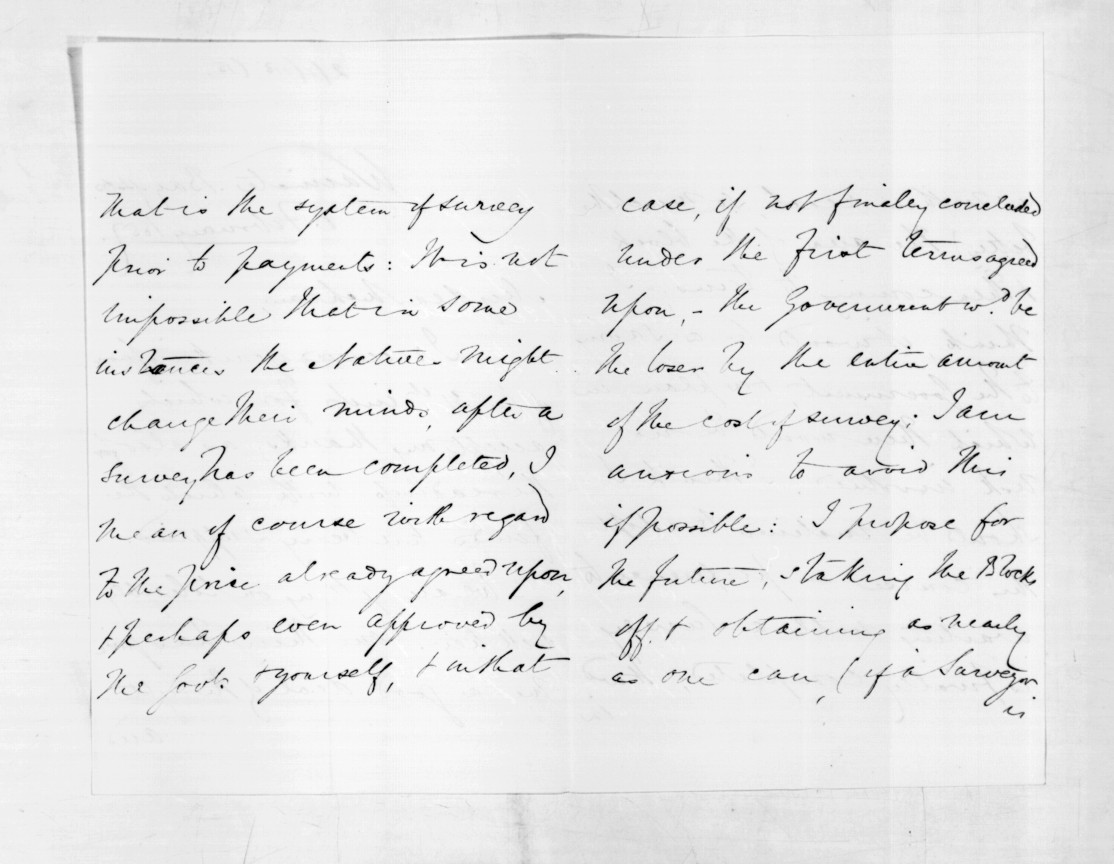 that is the system of survey
prior to payments: It is not
impossible that in some
instances the Natives might
change their minds, after a
survey has been completed, I
mean of course with regard
to the price already agreed upon,
& perhaps even approved by
the Govt. & yourself, & in that
case, if not finaley concluded
under the first terms agreed
upon, - the Government wd. be
the loser by the entire amount
of the cost of survey; I am
anxious to avoid this
if possible: I propose for
the future, staking the Blocks
off & obtaining as nearly
as one can, (if a Surveyor
is